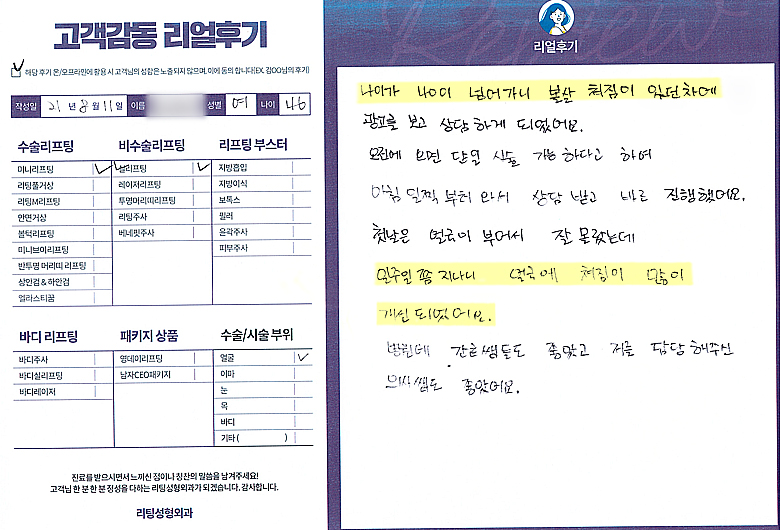 고객감동 리얼후기
해당 후기 온/오프라인에 활용 시 고객님의 성함은 노출되지 않으며, 이에 동의 합니다(EX. 김OO님의 후기)
작성일 21년 8월 11일 이름 성별 여 나이 46
수술리프팅 비수술리프팅 리프팅 부스터
미니리프팅 실리프팅 지방흡입
리팅풀거상 레이저리프팅 지방이식
리팅M리프팅 투명머리띠리프팅 보톡스
안면거상 리팅주사 필러
붐턱리프팅 베네핏주사 윤곽주사
미니브이리프팅 피부주사
반투명 머리띠 리프팅
상안검 & 하안검
얼라스티꿈
바디 리프팅 패키지 상품 수술/시술 부위
바디주사 영데이리프팅 얼굴
바디실리프팅 남자CEO패키지 이마
바디레이저 눈
목
바디
기타 ( )
진료를 받으시면서 느끼신 점이나 칭찬의 말씀을 남겨주세요!
고객님 한 분 한 분 정성을 다하는 리팅성형외과가 되겠습니다. 감사합니다.
리팅성형외과
Review
리얼후기
나이가 나이미 넘어가니 볼살 쳐짐이 있던차에
광고를 보고 상담하게 되었어요.
오전에 오면 당일 시술 가능 하다고 하여
아침 일찍 부터 와서 상담 받고 바로 진행했어요.
첫날은 얼굴이 부어서 잘 몰랐는데
일주일 쯤 지나니 얼굴에 쳐짐이 많이
개선 되었어요.
병원에 간호쌤들도 좋았고 저를 담당 해주신
의사쌤도 좋았어요.